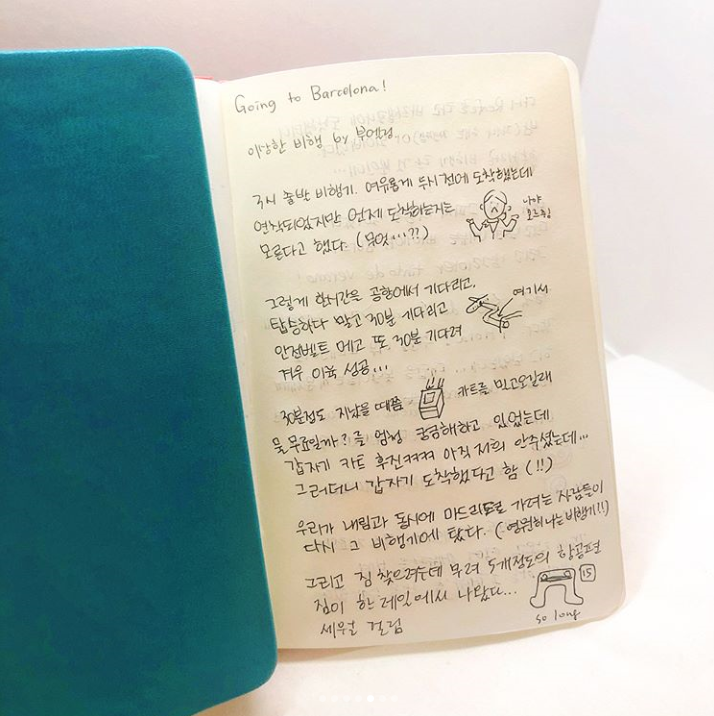 Going to Barcelona!
이상한 비행 by 부엉정
3시 중반 비행기. 여유롭게 두시 전에 도착했는데
연착되었지만 언제 도착하는지는
모른다고 했다. (무엇...??)
나야
모르죠
그렇게 한시간을 공항에서 기다리고,
탑승하다 말고 30분 기다리고
여기서
안전벨트 메고 또 30분 기다려
겨우 이륙 성공...
30분정도 지났을 때쯤 카트를 밀고오길래
물 무료일까? 를 엄청 궁금해하고 있었는데
갑자기 카트 후진켜켜 아직 저희 안주셨는데...
그러더니 갑자기 도착했다고 함 (!!)
우리가 내림과 동시에 마드리드로 가려는 사람들이
다시 그 비행기에 탔다. (영원히 나는 비행기!!)
그리고 짐 찾으려는데 무려 5개정도의 항공편
짐이 한 레일에서 나왔다...
15
세월 걸림
so long